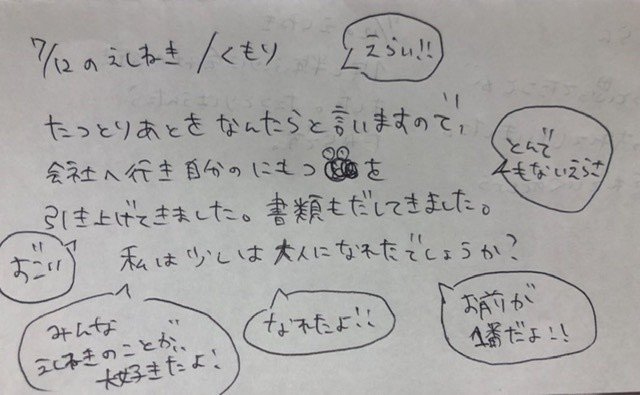 7/12のえしねき/くもり
えらい!!
たつとりあとをなんたらと言いますので、
会社へ行き自分のにもつを
とんで
もないえらさ
引き上げてきました。書類もだしてきました。
すごい
私は少しは大人になれたでしょうか?
みんな
えしねきのことが、
大好きだよ!
なれたよ!!
お前が
1番だよ!!